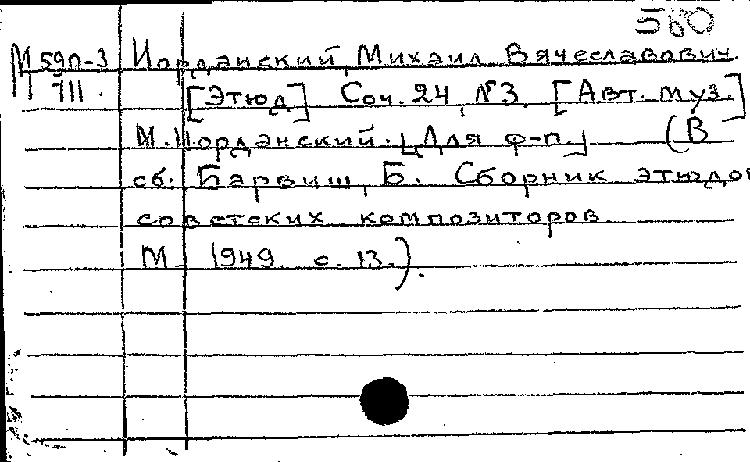 560
М 590-3 Иорданский, Михаил Вячеславович.
711. [Этюд] Соч. 24, №3. [Авт. муз.]
М. Иорданский. [Для ф-п.] (В
сб: Барвиш, Б. Сборник этюдов
советских композиторов.
М. 1949. с. 13.).